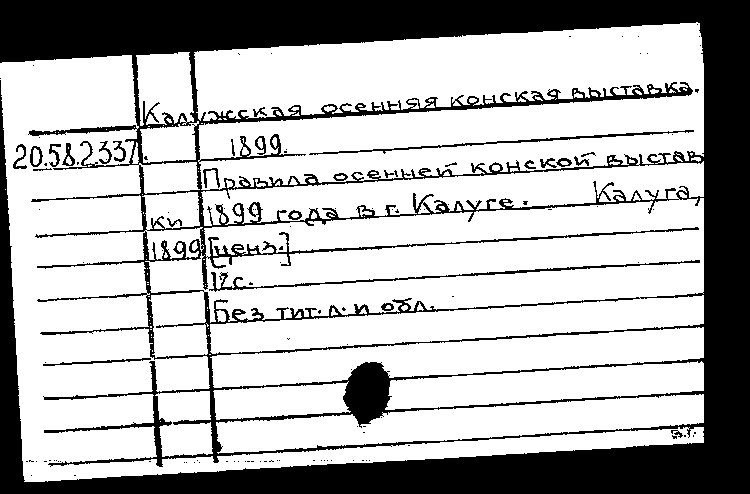 Калужская осенняя конская выставка.
20.58.2337. 1899.
Правила осенней конской выстав
ки 1899 года в г. Калуге. Калуга,
1899 [ценз.]
12с.
Без тит. л. и обл.
В.Г.